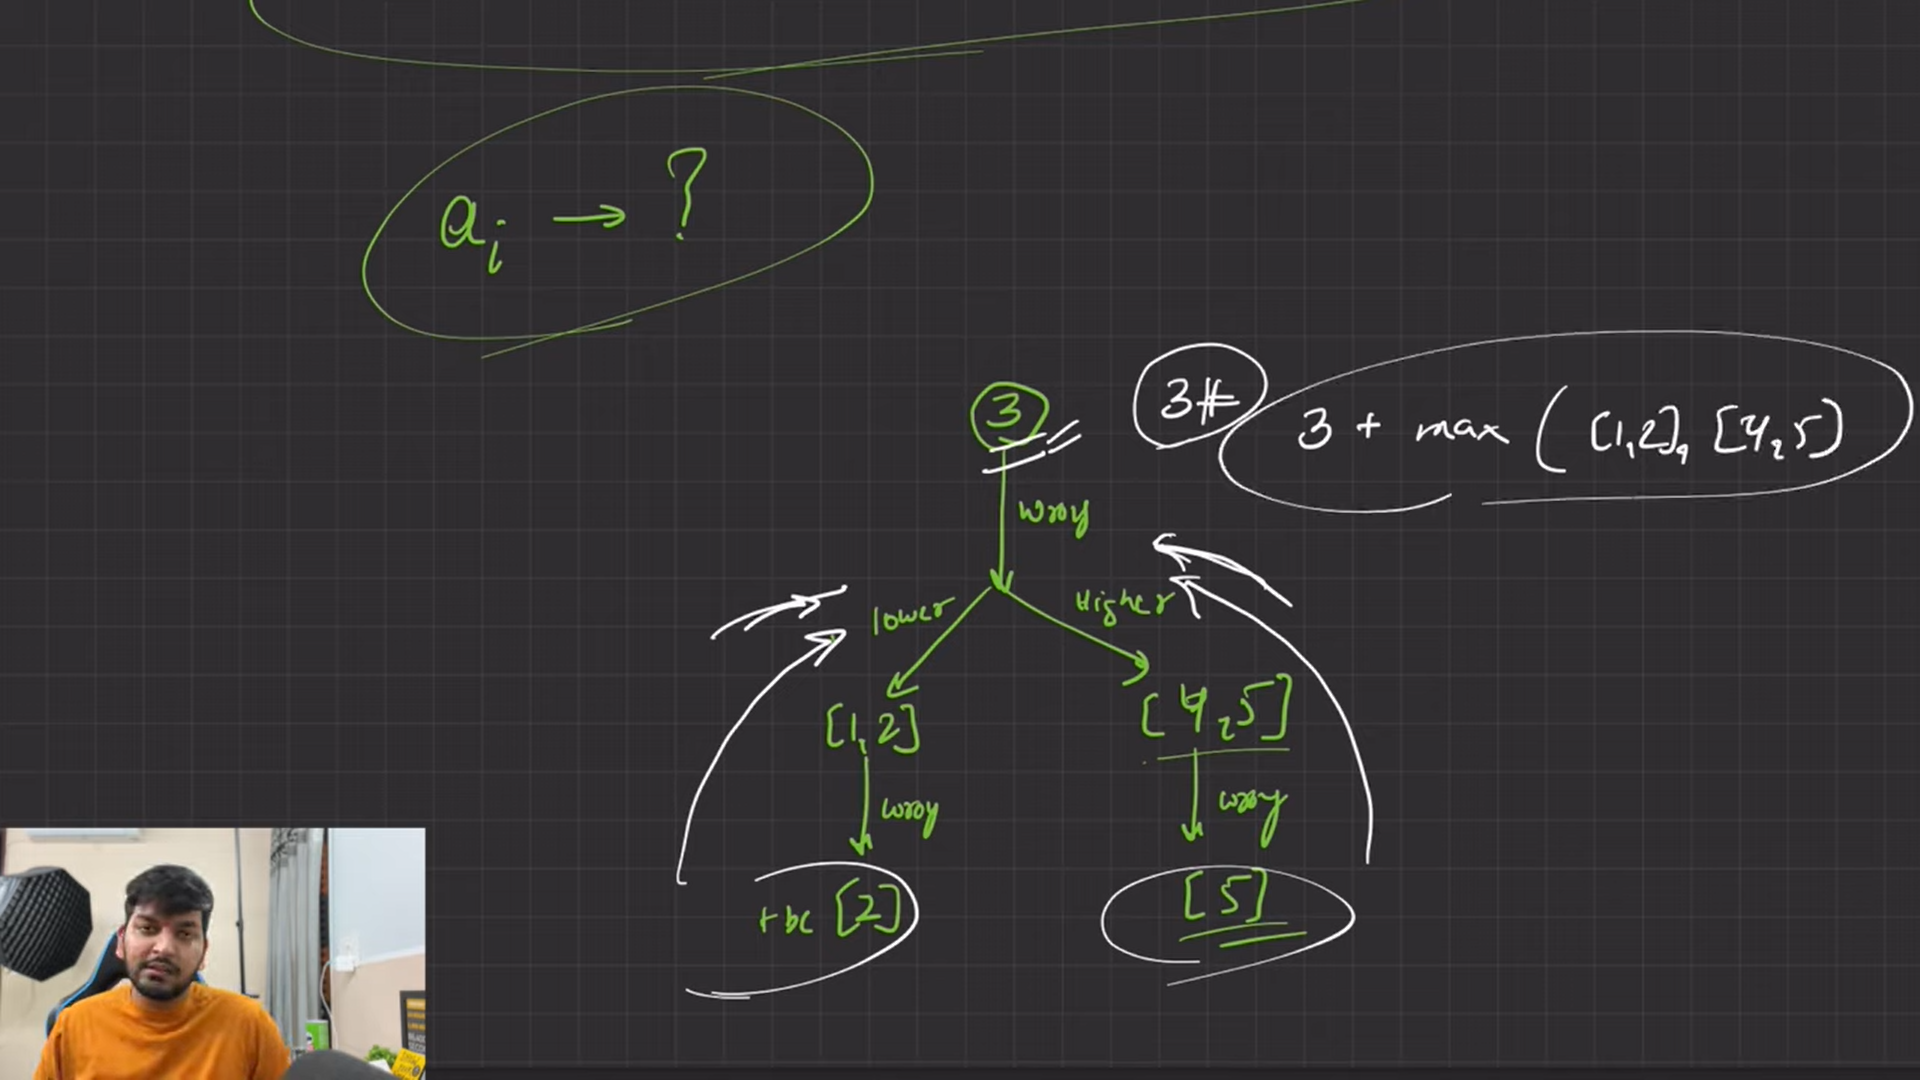 a_i → ?
3
3#
3 + max ( [1,2], [4,5] )
wrong
lower
Higher
[1,2]
[4,5]
wrong
wrong
[2]
[5]